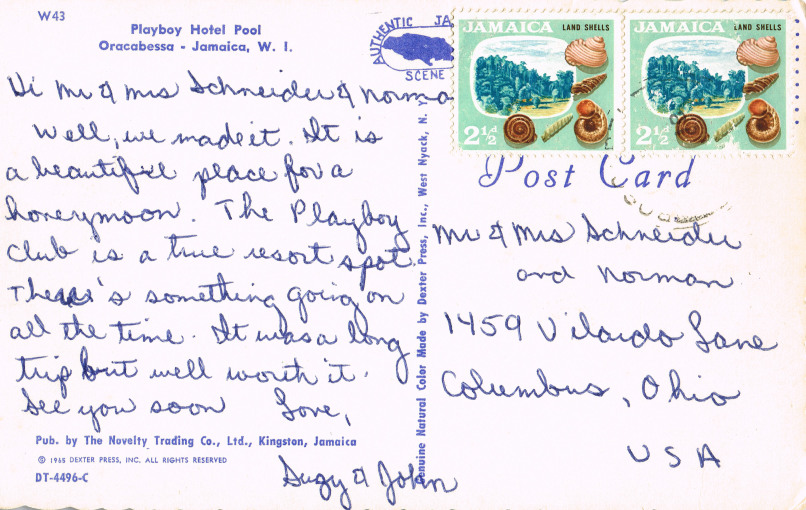 W43
Playboy Hotel Pool
Oracabessa - Jamaica, W. I.
AUTHENTIC JA
SCENE
JAMAICA LAND SHELLS
2½d
JAMAICA LAND SHELLS
2½d
Hi Mr & Mrs Schneider & Norman
Well, we made it. It is
a beautiful place for a
honeymoon. The Playboy
Club is a true resort spot.
There's something going on
all the time. It was a long
trip but well worth it.
See you soon Love,
Suzy & John
Pub. by The Novelty Trading Co., Ltd., Kingston, Jamaica
© 1965 DEXTER PRESS, INC. ALL RIGHTS RESERVED
DT-4496-C
Genuine Natural Color Made by Dexter Press, Inc., West Nyack, N. Y.
Post Card
Mr & Mrs Schneider
and Norman
1459 Vilardo Lane
Columbus, Ohio
USA